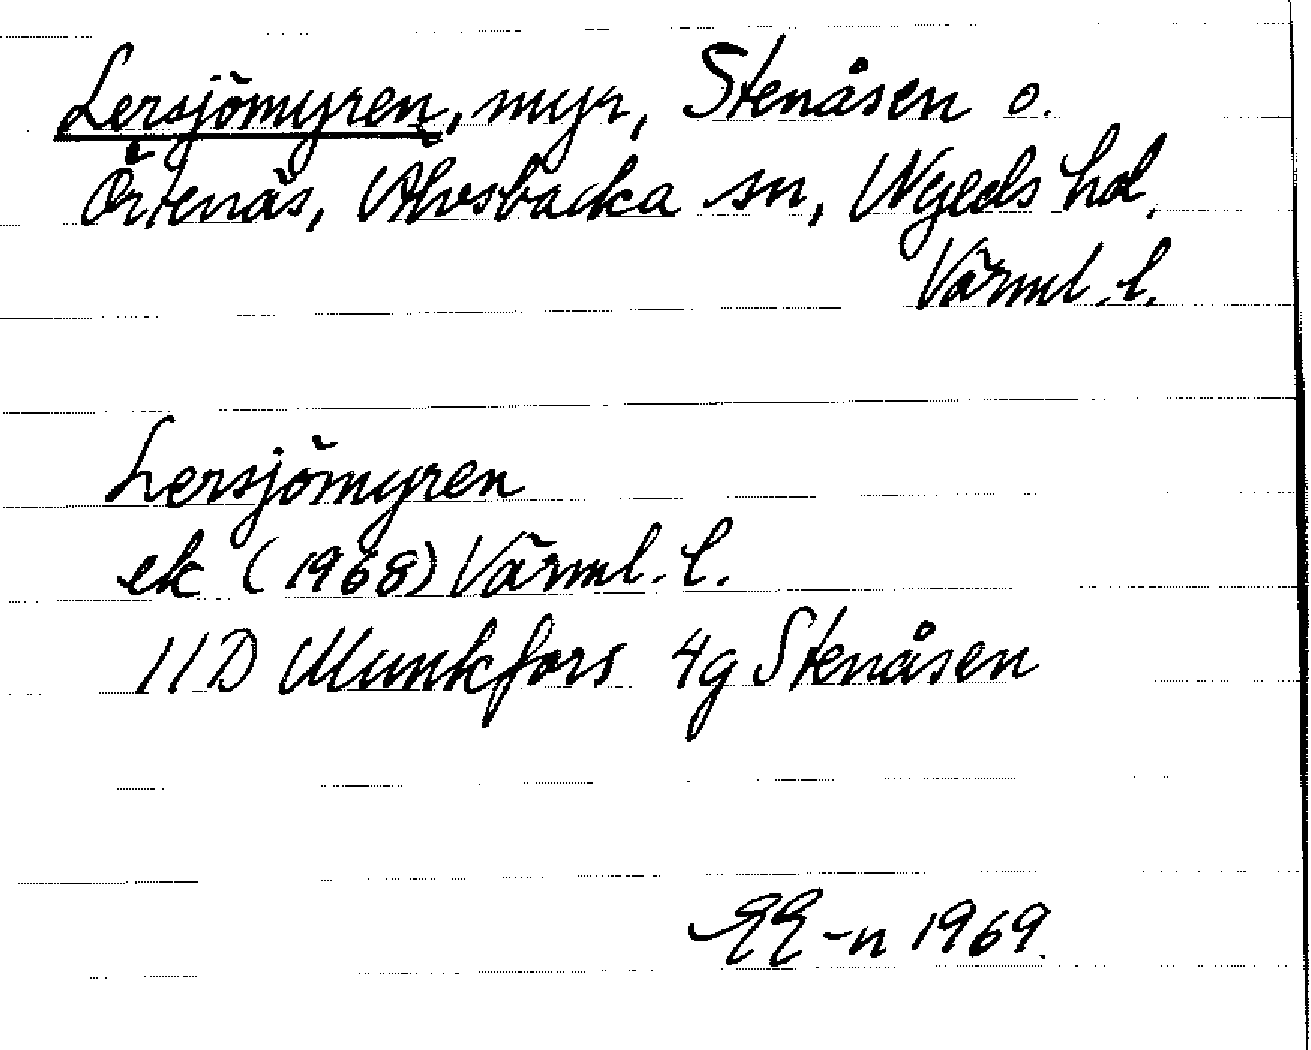 Lersjömyren, myr, Stenåsen o.
Örtenäs, Älvsbacka sn, Nyeds hd,
Värml. l.
Lersjömyren
ek (1968) Värml. l.
11D Munkfors 4g Stenåsen
EE-n 1969.